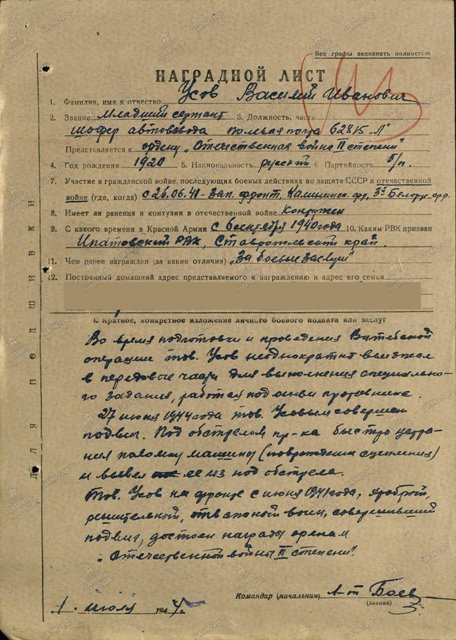 Все графы заполнять полностью
НАГРАДНОЙ ЛИСТ
1. Фамилия, имя и отчество: Усов Василий Иванович
2. Звание Младший сержант 3. Должность, часть
шофер автовзвода полевая почта 62815 "Л"
Представляется к ордену "Отечественная война II степени"
4. Год рождения 1920 5. Национальность русский 6. Партийность б/п
7. Участие в гражданской войне, последующих боевых действиях по защите СССР и отечественной
войне (где, когда) с 26.06.41- Зап. фронт, Калининск. фр, 3й Белорус. фр.
8. Имеет ли ранения и контузии в отечественной войне Контужен
9. С какого времени в Красной Армии с сентября 1940 года 10. Каким РВК призван
Ипатовский РВК, Ставропольский край
11. Чем ранее награжден (за какие отличия) "За боевые заслуги"
12. Постоянный домашний адрес представляемого к награждению и адрес его семьи
ДЛЯ ПОДШИВКИ
I. Краткое, конкретное изложение личного боевого подвига или заслуг
Во время подготовки и проведения Витебской
операции тов. Усов неоднократно выезжал
в передовые части для выполнения специально-
го задания, работая под огнем противника.
27 июня 1944 года тов. Усовым совершен
подвиг. Под обстрелом пр-ка быстро устра-
нил поломку машины (повреждение сцепления)
и вывел ее из под обстрела.
Тов. Усов на фронте с июня 1941 года, храбрый,
решительный, отважный воин, совершивший
подвиг, достоин награды орденом
"Отечественной войны II степени".
Командир (начальник) л-т Боев
(звание)
1 июля 1944